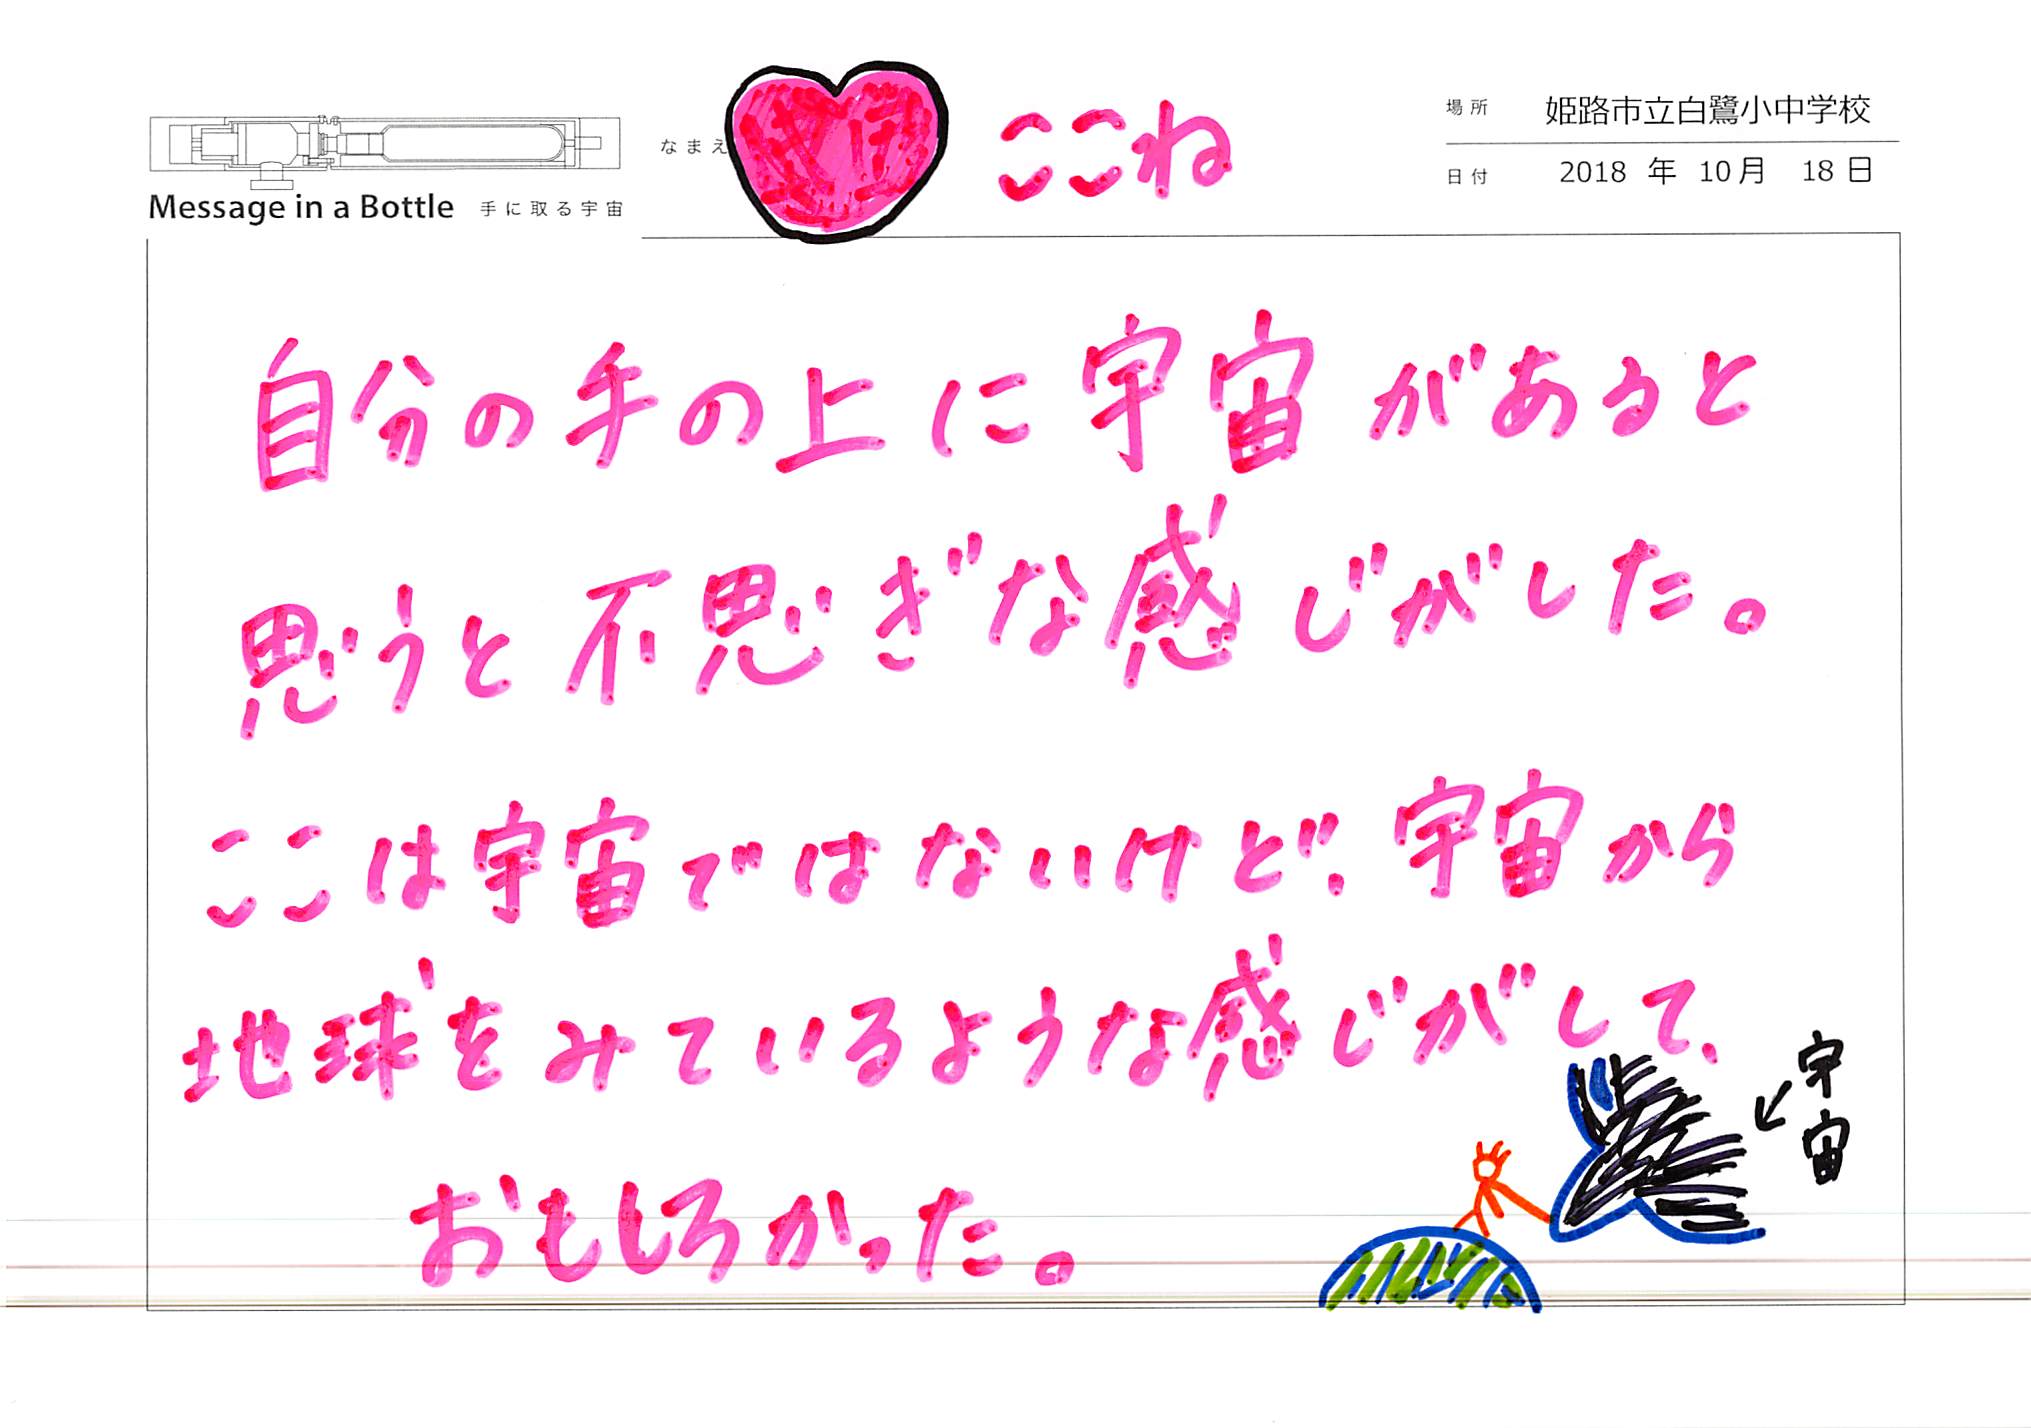 なまえ
ここね
場所 姫路市立白鷺小中学校
日付 2018 年 10月 18日
Message in a Bottle 手に取る宇宙
自分の手の上に宇宙があると
思うと不思ぎな感じがした。
ここは宇宙ではないけど、宇宙から
地球をみているような感じがして、
おもしろかった。
宇宙